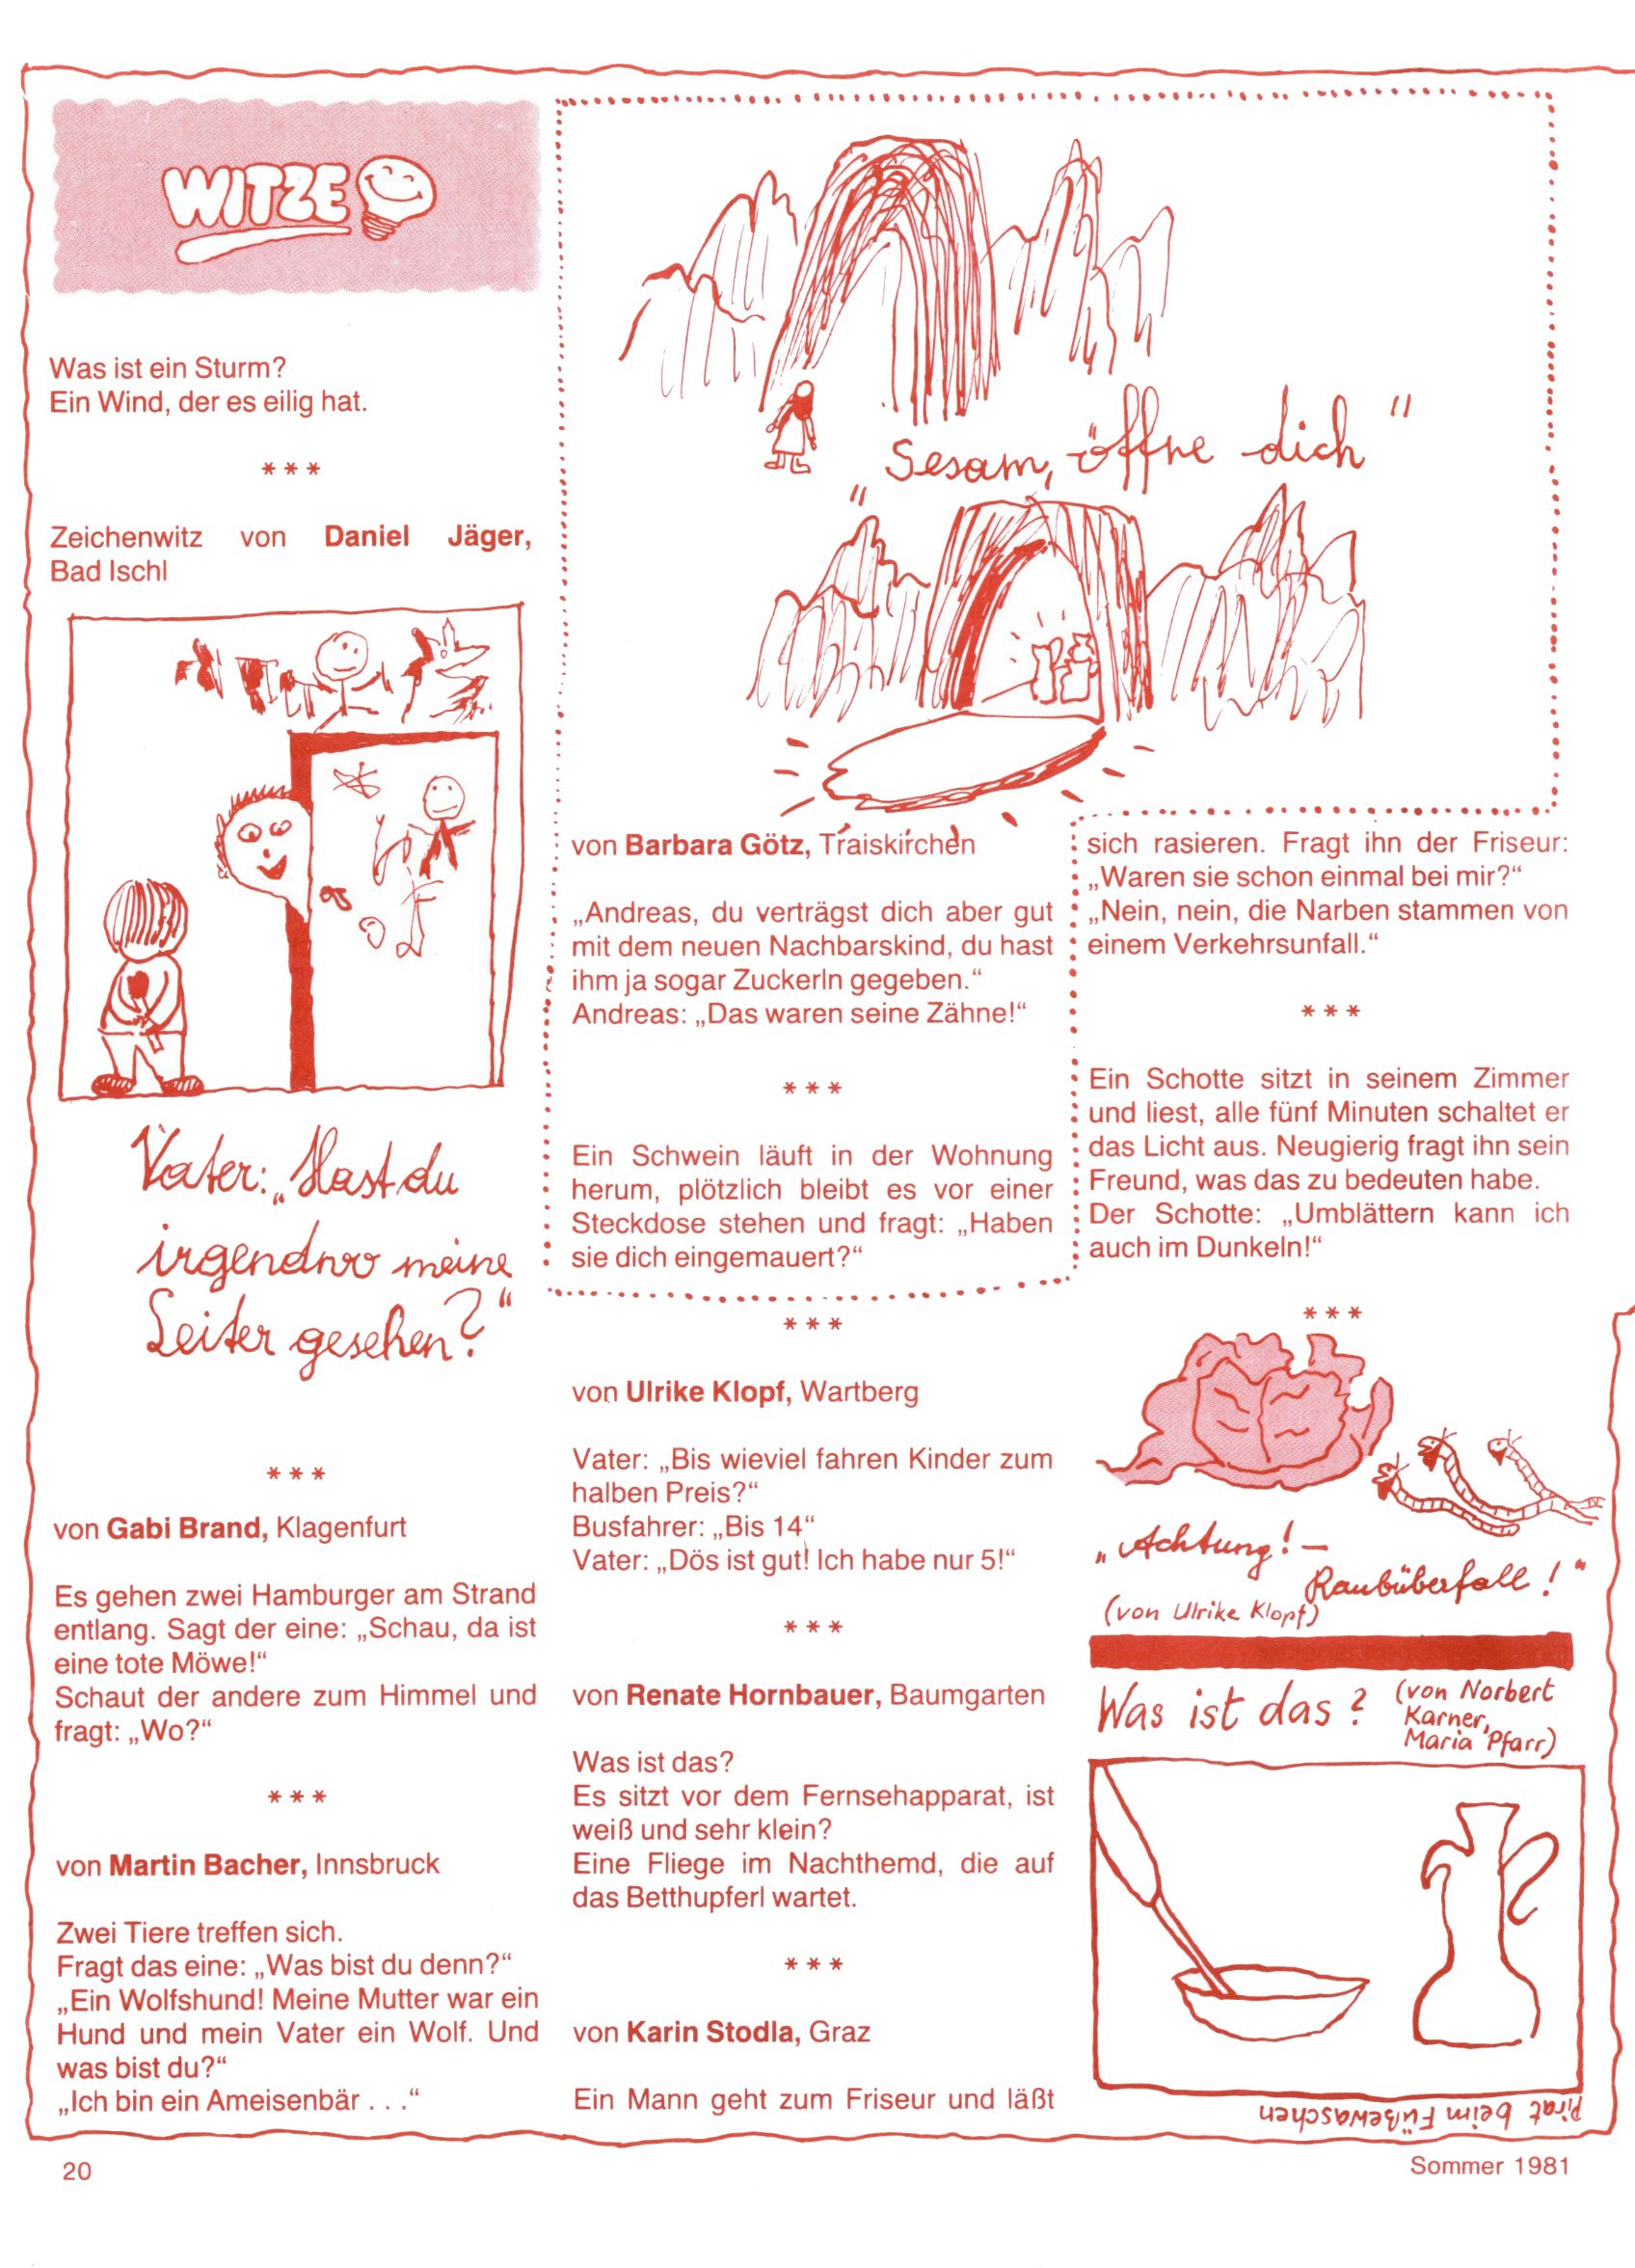 WITZE
Was ist ein Sturm?
Ein Wind, der es eilig hat.
* * *
Zeichenwitz von Daniel Jäger,
Bad Ischl
Vater: „Hast du
irgendwo meine
Leiter gesehen?“
* * *
von Gabi Brand, Klagenfurt
Es gehen zwei Hamburger am Strand
entlang. Sagt der eine: „Schau, da ist
eine tote Möwe!“
Schaut der andere zum Himmel und
fragt: „Wo?“
* * *
von Martin Bacher, Innsbruck
Zwei Tiere treffen sich.
Fragt das eine: „Was bist du denn?“
„Ein Wolfshund! Meine Mutter war ein
Hund und mein Vater ein Wolf. Und
was bist du?“
„Ich bin ein Ameisenbär . . .“
"Sesam, öffne dich"
von Barbara Götz, Traiskirchen
„Andreas, du verträgst dich aber gut
mit dem neuen Nachbarskind, du hast
ihm ja sogar Zuckerln gegeben.“
Andreas: „Das waren seine Zähne!“
* * *
Ein Schwein läuft in der Wohnung
herum, plötzlich bleibt es vor einer
Steckdose stehen und fragt: „Haben
sie dich eingemauert?“
* * *
von Ulrike Klopf, Wartberg
Vater: „Bis wieviel fahren Kinder zum
halben Preis?“
Busfahrer: „Bis 14“
Vater: „Dös ist gut! Ich habe nur 5!“
* * *
von Renate Hornbauer, Baumgarten
Was ist das?
Es sitzt vor dem Fernsehapparat, ist
weiß und sehr klein?
Eine Fliege im Nachthemd, die auf
das Betthupferl wartet.
* * *
von Karin Stodla, Graz
Ein Mann geht zum Friseur und läßt
sich rasieren. Fragt ihn der Friseur:
„Waren sie schon einmal bei mir?“
„Nein, nein, die Narben stammen von
einem Verkehrsunfall.“
* * *
Ein Schotte sitzt in seinem Zimmer
und liest, alle fünf Minuten schaltet er
das Licht aus. Neugierig fragt ihn sein
Freund, was das zu bedeuten habe.
Der Schotte: „Umblättern kann ich
auch im Dunkeln!“
* * *
„Achtung! –
Raubüberfall!“
(von Ulrike Klopf)
Was ist das?
(von Norbert
Karner,
Maria Pfarr)
Pirat beim Füßewaschen
20
Sommer 1981